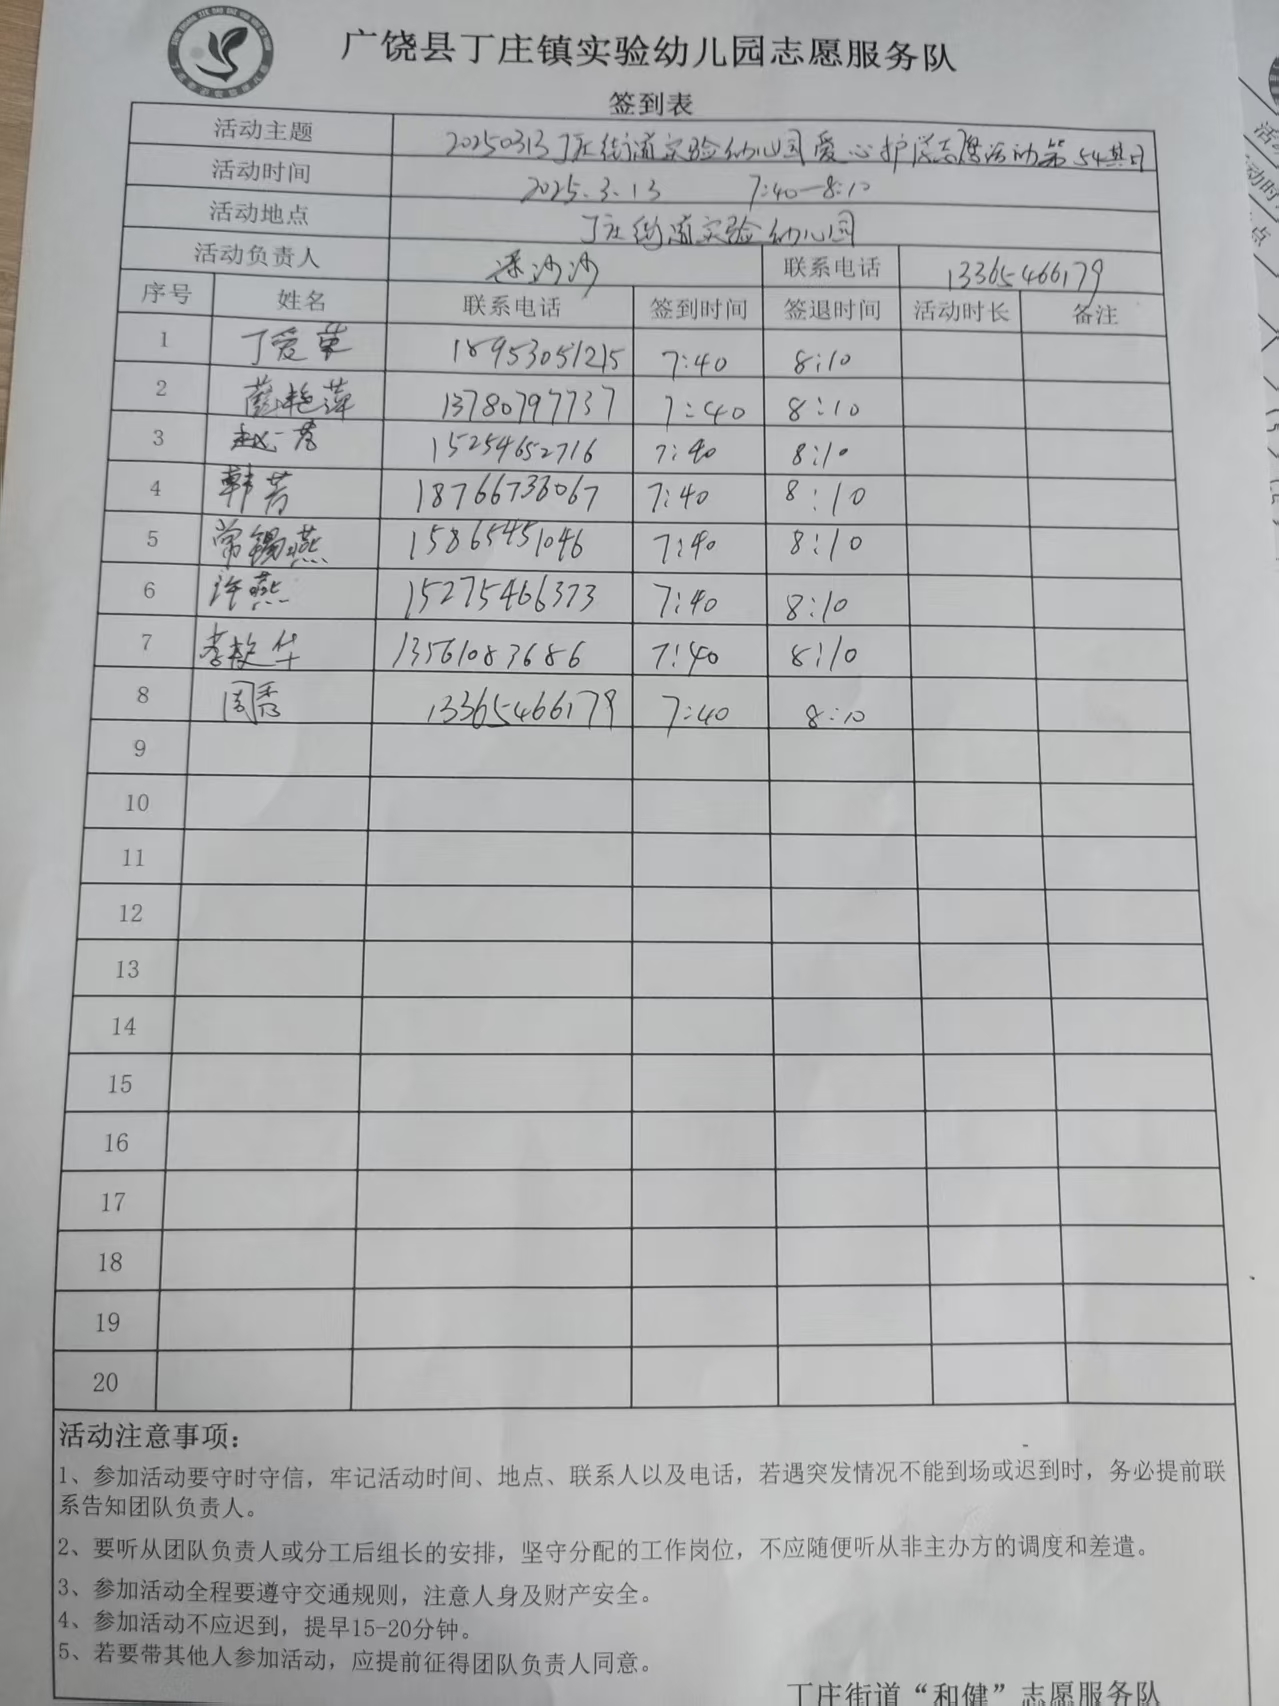 广饶县丁庄镇实验幼儿园志愿服务队
签到表
活动主题 20250313丁庄街道实验幼儿园爱心护学志愿活动第54期
活动时间 2025.3.13 7:40-8:10
活动地点 丁庄街道实验幼儿园
活动负责人 沙沙 联系电话 13365466179
序号 姓名 联系电话 签到时间 签退时间 活动时长 备注
1 丁爱 18953051215 7:40 8:10
2 艳萍 13780797737 7:40 8:10
3 赵芳 15254652716 7:40 8:10
4 韩芳 18766736067 7:40 8:10
5 常锡燕 15865451046 7:40 8:10
6 许燕 15275466373 7:40 8:10
7 李 华 13561083686 7:40 8:10
8 周秀 13365466179 7:40 8:10
9
10
11
12
13
14
15
16
17
18
19
20
活动注意事项：
1、参加活动要守时守信，牢记活动时间、地点、联系人以及电话，若遇突发情况不能到场或迟到时，务必提前联
系告知团队负责人。
2、要听从团队负责人或分工后组长的安排，坚守分配的工作岗位，不应随便听从非主办方的调度和差遣。
3、参加活动全程要遵守交通规则，注意人身及财产安全。
4、参加活动不应迟到，提早15-20分钟。
5、若要带其他人参加活动，应提前征得团队负责人同意。
丁庄街道“和健”志愿服务队